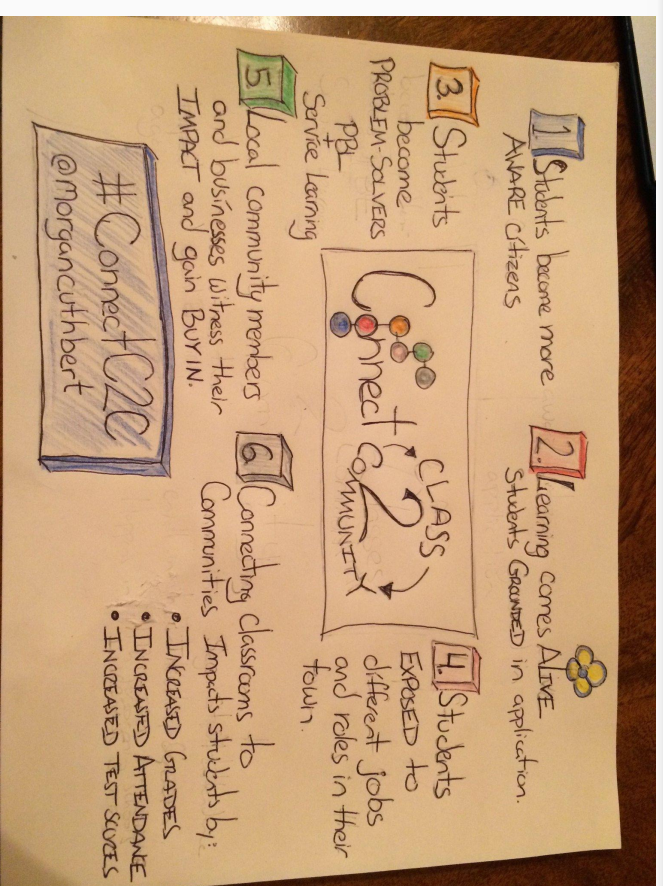 1. Students become more
AWARE citizens
2. Learning comes ALIVE
Students GROUNDED in application.
3. Students
become
PROBLEM-SOLVERS
PBL
+
Service Learning
Connect
CLASS
2
COMMUNITY
4. Students
EXPOSED to
different jobs
and roles in their
town.
5. Local community members
and businesses witness their
IMPACT and gain BUY IN.
6 Connecting Classrooms to
Communities Impacts students by:
• INCREASED GRADES
• INCREASED ATTENDANCE
• INCREASED TEST SCORES
#ConnectC2C
@morgancuthbert